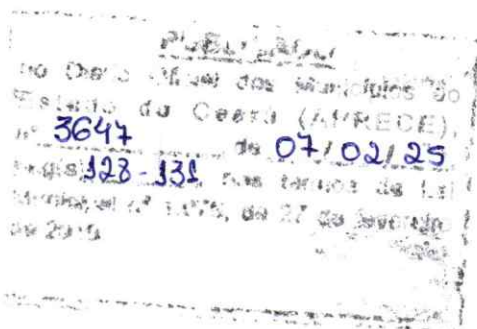 PUBLICADO
no Diário Oficial dos Municípios do
Estado do Ceará (APRECE),
nº 3647 de 07/02/25
128-131, nos termos da Lei
Municipal nº de 27 de fevereiro
de